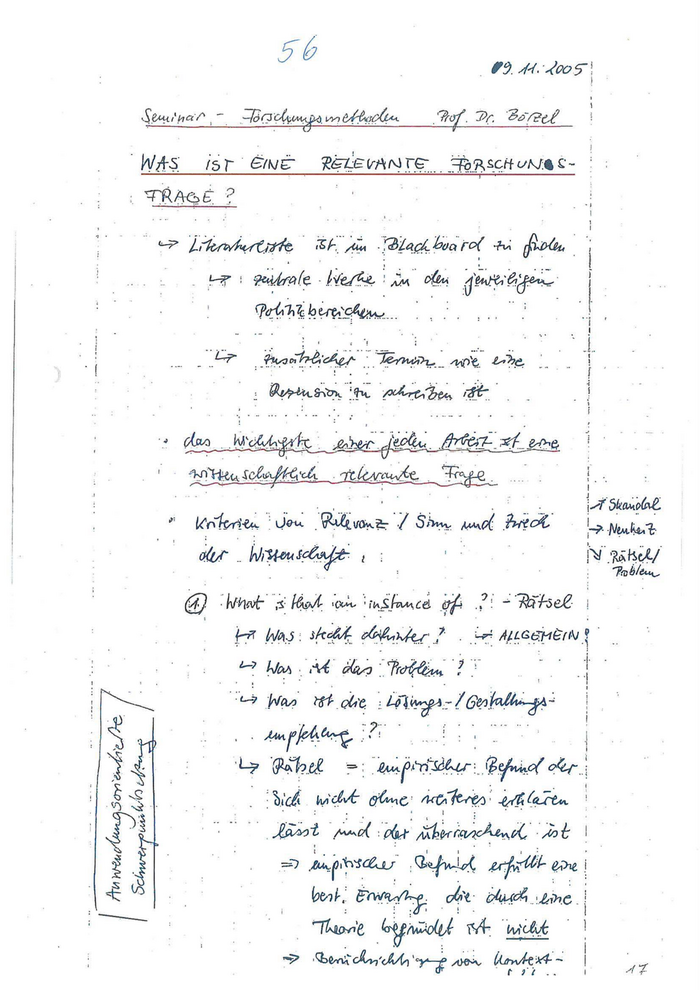 56
09.11.2005
Seminar - Forschungsmethoden Prof. Dr. Börzel
WAS IST EINE RELEVANTE FORSCHUNGS-
FRAGE?
↳ Literaturliste ist im Blackboard zu finden
↳ zentrale Werke in den jeweiligen
Politikbereichen
↳ zusätzlicher Termin wie eine
Rezension zu schreiben ist
• das Wichtigste einer jeden Arbeit ist eine
wissenschaftlich relevante Frage
• Kriterien von Relevanz / Sinn und Zweck
der Wissenschaft:
↗ Skandal
→ Neuheit
↘ Rätsel/
Problem
① What is that an instance of? - Rätsel
↳ Was steckt dahinter? → ALLGEMEIN!
↳ Was ist das Problem?
↳ Was ist die Lösungs-/Gestaltungs-
empfehlung?
↳ Rätsel = empirischer Befund der
sich nicht ohne weiteres erklären
lässt und der überraschend ist
⇒ empirischer Befund erfüllt eine
best. Erwartg. die durch eine
Theorie begründet ist nicht
⇒ Berücksichtigung von Kontext-
Anwendungsorientierte
Schwerpunktsetzung
17